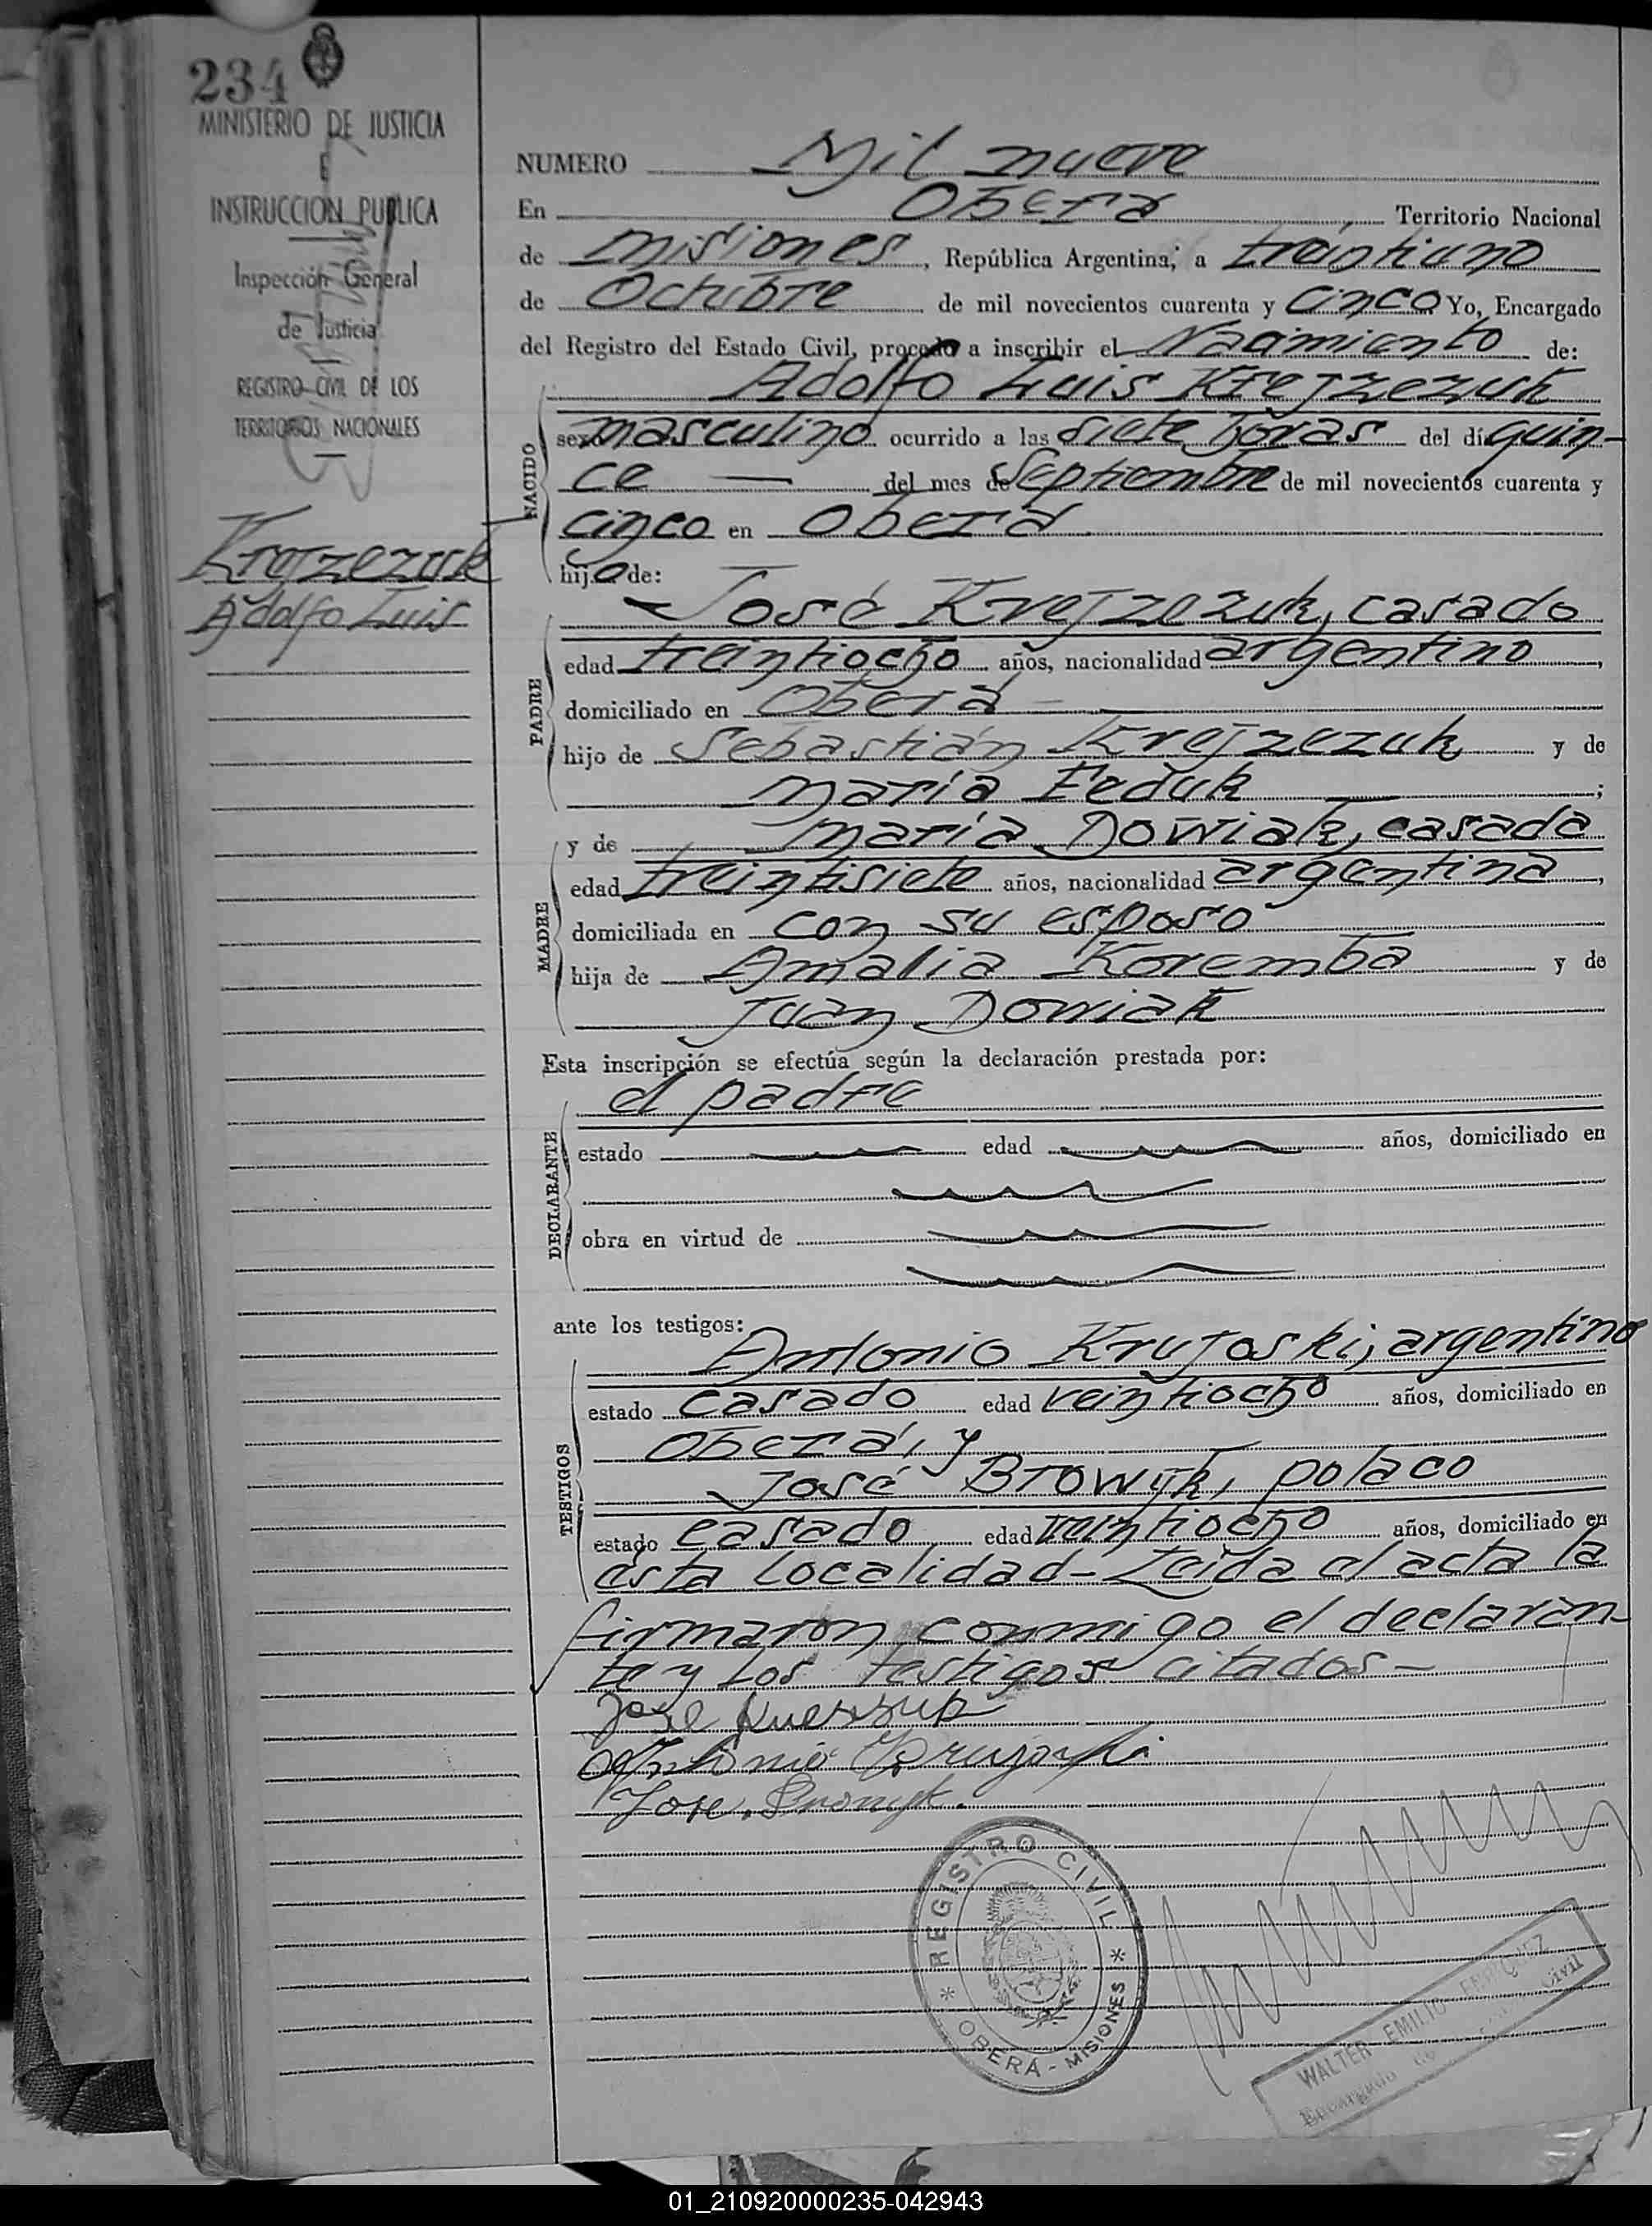 234
MINISTERIO DE JUSTICIA
E
INSTRUCCION PUBLICA
Inspección General
de Justicia
REGISTRO CIVIL DE LOS
TERRITORIOS NACIONALES
Krejzezuk
Adolfo Luis
NUMERO Mil nueve
En Oberá Territorio Nacional
de Misiones, República Argentina, a treintiuno
de Octubre de mil novecientos cuarenta y cinco Yo, Encargado
del Registro del Estado Civil, procedo a inscribir el Nacimiento de:
Adolfo Luis Krejzezuk
NACIDO
sexo masculino ocurrido a las siete horas del día quin-
ce — del mes de Septiembre de mil novecientos cuarenta y
cinco en Oberá
hijo de:
José Krejzezuk, casado
PADRE
edad treintiocho años, nacionalidad argentino,
domiciliado en Oberá
hijo de Sebastián Krejzezuk y de
María Feduk;
y de María Dowiak, casada
MADRE
edad treintisiete años, nacionalidad argentina,
domiciliada en con su esposo
hija de Amalia Koremba y de
Juan Dowiak
Esta inscripción se efectúa según la declaración prestada por:
el padre
DECLARANTE
estado edad años, domiciliado en
obra en virtud de
ante los testigos:
Antonio Krujoski, argentino
TESTIGOS
estado casado edad veintiocho años, domiciliado en
Oberá, y
José Browyk, polaco
estado casado edad veintiocho años, domiciliado en
esta localidad- Leída el acta la
firmaron conmigo el declaran-
te y los testigos citados-
Jose
Antonio Krujoski
Jose
REGISTRO CIVIL
OBERÁ - MISIONES
WALTER EMILIO ENRIQUEZ
Encargado de Civil
01_210920000235-042943